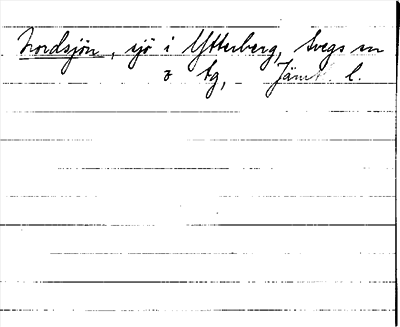 Nordsjön, sjö i Ytterberg, Svegs sn
o tg, Jämt. l.